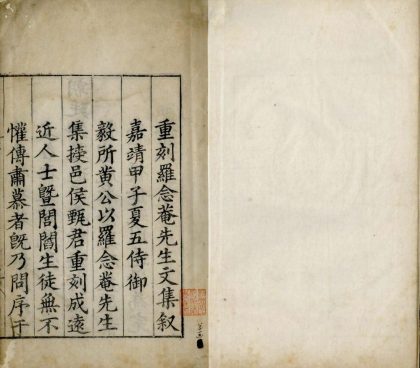 重刻羅念菴先生文集叙
嘉靖甲子夏五侍御
毅所黃公以羅念菴先生
集授邑侯甄君重刻成遠
近人士曁閭閻生徒無不
懽傳肅慕者旣乃問序于